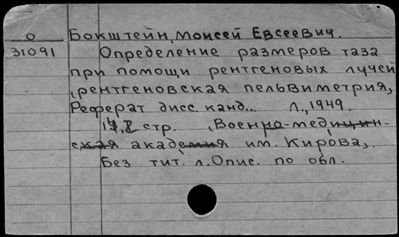 0 Бокштейн, Моисей Евсеевич.
31091 Определение размеров таза
при помощи рентгеновых лучей
(рентгеновская пельвиметрия)
Реферат дисс. канд... Л., 1949.
стр. (Военно-медицин-
ская академия им. Кирова).
Без тит. л. Опис. по обл.